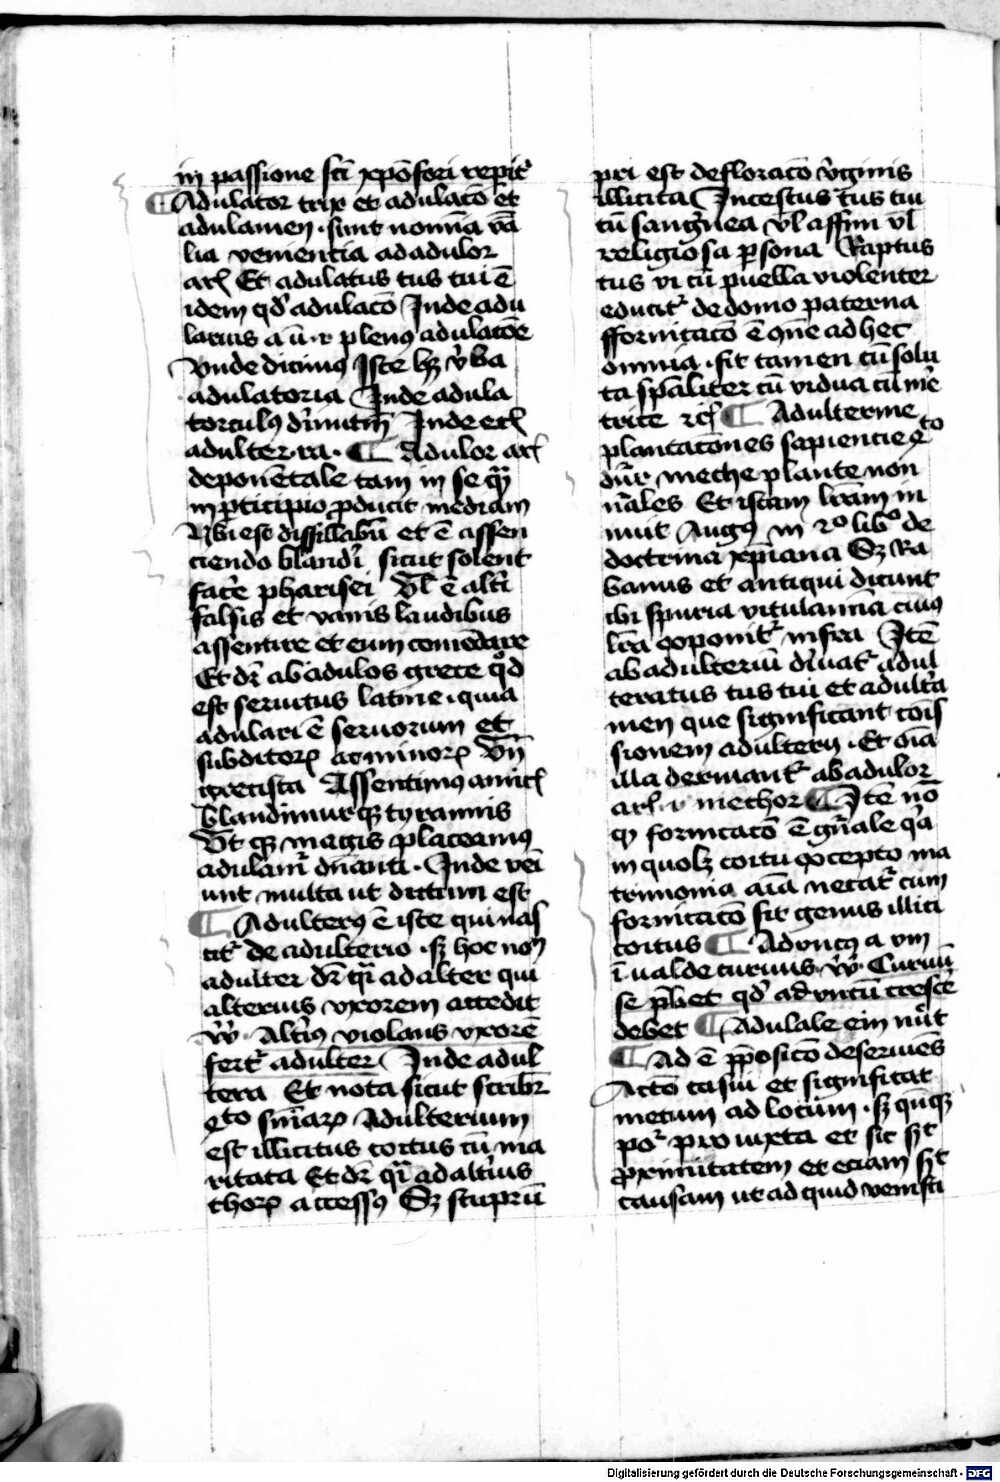 in passione scī xpōfori repit᷑
¶ Adulator trix et adulacō et
adulamen · sunt nomīa vā
lia venientia ad adulor
arꝭ Et adulatus tus tui ē
idem qd' adulacō Inde adu
latiuus a ū · i · plenꝰ adulacōe
Vnde dicimꝰ Iste hꝫ v̄ba
adulatoria Inde adula
torculꝰ dīmutiū Inde etꝭ
adulter · ra · ¶ Adulor arꝭ
deponētale tam in se qͣꝫ
in pticipio producit mediam
Vbi est dissillabū et ē assen
ciendo blandiri sicut solent
face pharisei Vl' ē alt'i
falsis et vanis laudibus
assentire et eum comēdare
Et dr̄ ab adulos grece qd'
est seruitus latine · quia
adulari ē seruorum et
subditorꝝ ac minorꝝ Vn̄
grecista Assentimꝰ amicꝭ
blandimur qꝫ tyrannis
Vt qꝫ magis placeamꝰ
adulamͬ dn̄anti · Inde veī
unt multa ut dictum est
¶ Adulterꝰ ē iste qui nas
citͬ de adulterio · sꝫ hoc nom̄
adulter dr̄ qͣi ad alter qui
alterius vxorem accedit
vꝰ Alt'iꝰ violans vxorē
fertͬ adulter Inde adul
tera Et nota sicut scribit᷑
qͬto sniarꝝ Adulterium
est illicitus coitus cū ma
ritata Et dr̄ qͣi ad alt'ius
thorꝝ accessꝰ Sꝫ stuprū
pri est defloracō v̄ginis
illicita Incestus tus tui
cū sang'nea vl' affini vl'
religiosa psona Raptus
tus ui cū puella violenter
educitͬ de domo paterna
fformicacō ē om̄e ad hec
omnia · fit tamen cū solu
ta spāliter cū vidua cū me
trice rc̄ ¶ Adulterine
plantacōnes sapiencie qͬto
dn̄r · meche plante non
nāles Et istam lrām in
nuit Augꝰ in 2º libº de
doctrina xpīana Sꝫ Ra
banus et antiqui dicunt
ibi spuria vitulamīa cuiꝰ
lrā exponitͬ infra Itē
ab adulteriū dīuatͬ adul
teratus tus tui et adult'a
men que significant cois
sionem adulterij · Et oīa
illa deriuantͬ ab adulor
arꝭ · i · mechor ¶ Itē nō
qꝫ fornicacō ē gn̄ale qͣ
in quolꝫ coitu excepto ma
trimonia aīa necatͬ cum
fornicacō sit genus illici
coitus ¶ Aduncꝰ a um
i · ualde curuus · vꝰ · Curuū
se pbet qd' aduncū cresce
debet ¶ Adulale ein nūt
¶ Ad ē pposicō deseruiēs
Actō casui et significat
metum ad locum · sꝫ qn̄qꝫ
poͬ pro iuxta et sic sꝫt
proximitatem et eciam sꝫt
causam ut ad quid venisti
Digitalisierung gefördert durch die Deutsche Forschungsgemeinschaft · DFG